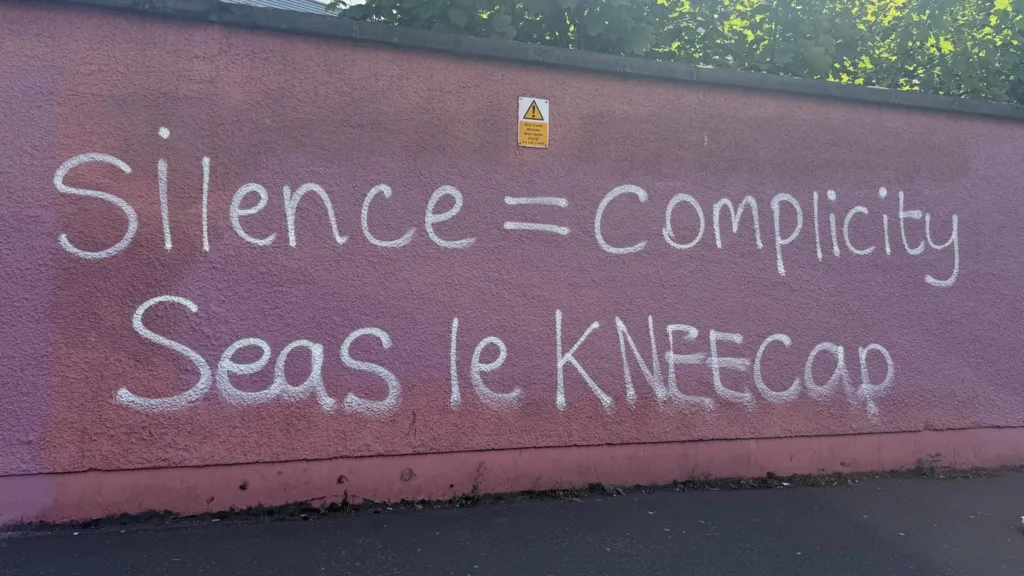 Silence = Complicity
Seas le KNEECap